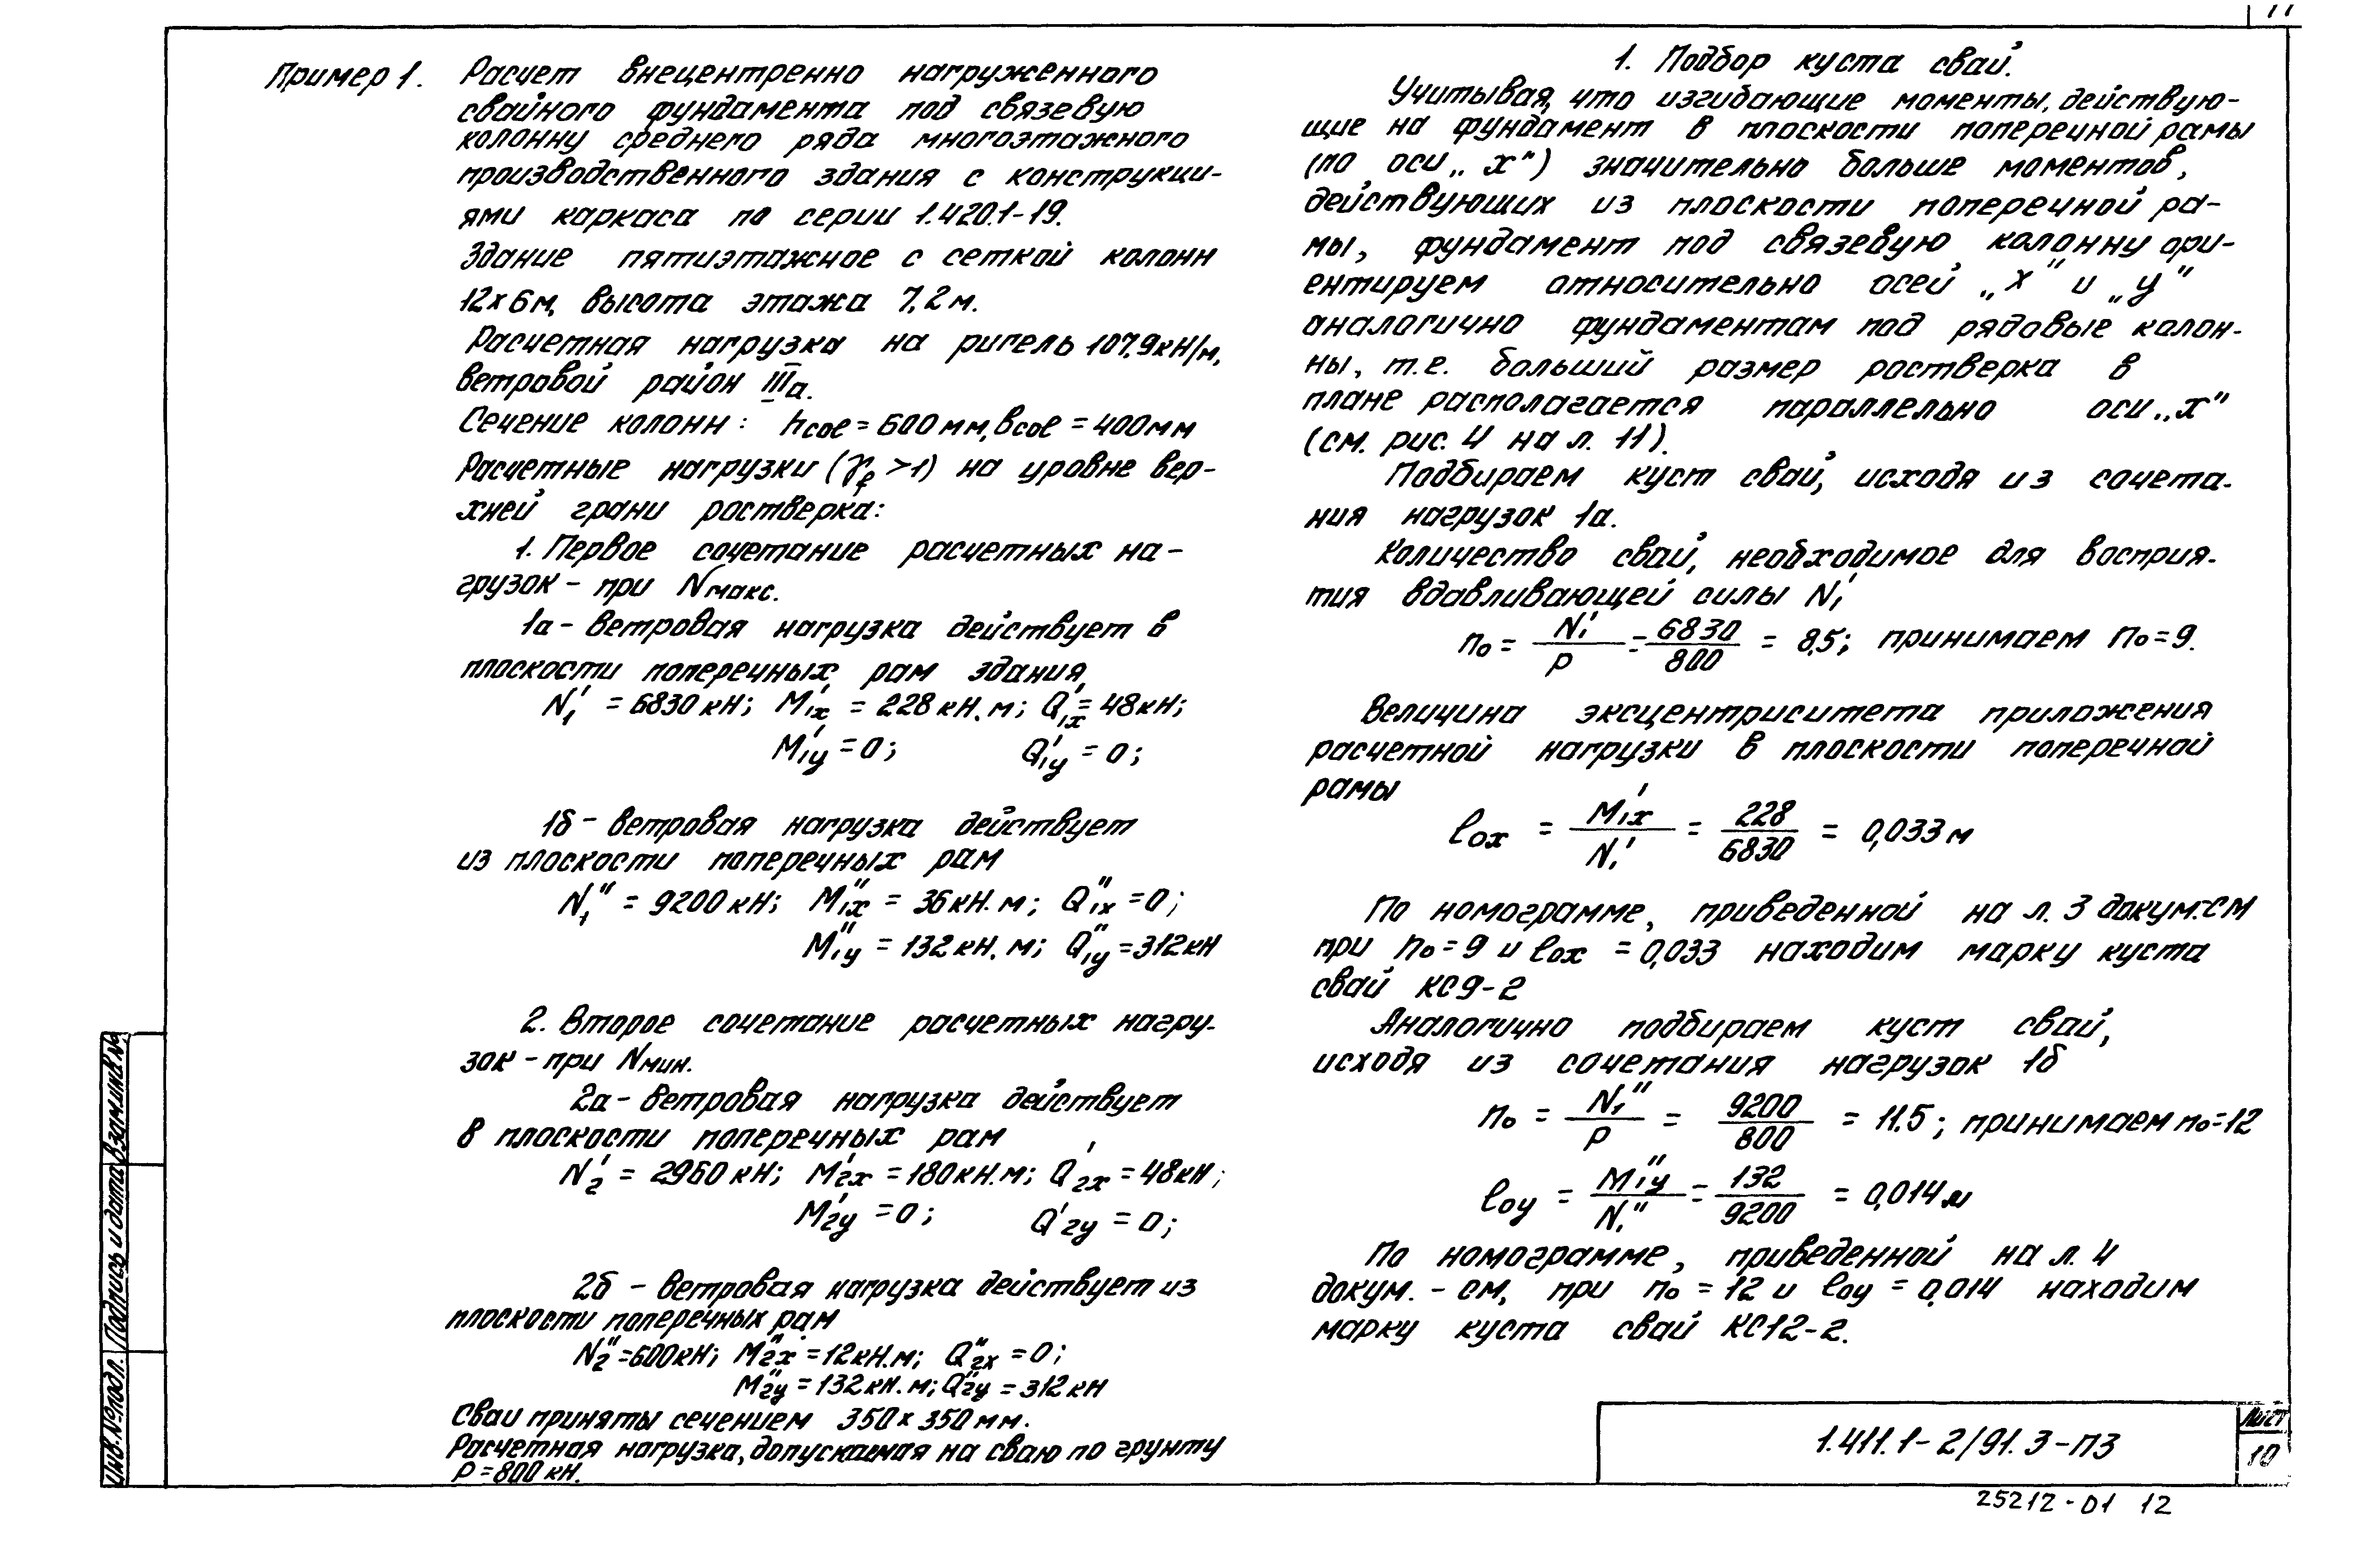 11
Пример 1. Расчет внецентренно нагруженного
свайного фундамента под связевую
колонну среднего ряда многоэтажного
производственного здания с конструкци-
ями каркаса по серии 1.420.1-19.
Здание пятиэтажное с сеткой колонн
12×6м, высота этажа 7,2м.
Расчетная нагрузка на ригель 107,9кН/м,
ветровой район IIIа.
Сечение колонн: hcol = 600мм, bcol = 400мм
Расчетные нагрузки (γf >1) на уровне вер-
хней грани ростверка:
1. Первое сочетание расчетных на-
грузок - при Nмакс.
1а - ветровая нагрузка действует в
плоскости поперечных рам здания,
N1' = 6830 кН; M'1x = 228 кН.м; Q'1x = 48кН;
M'1y = 0; Q'1y = 0;
1б - ветровая нагрузка действует
из плоскости поперечных рам
N1" = 9200 кН; M"1x = 36кН.м; Q"1x = 0;
M"1y = 132 кН.м; Q"1y = 312кН
2. Второе сочетание расчетных нагру-
зок - при Nмин.
2а - Ветровая нагрузка действует
в плоскости поперечных рам
N2' = 2960 кН; M'2x = 180кН.м; Q'2x = 48кН;
M'2y = 0; Q'2y = 0;
2б - ветровая нагрузка действует из
плоскости поперечных рам
N2" = 600кН; M"2x = 12кН.м; Q"2x = 0;
M"2y = 132 кН.м; Q"2y = 312 кН
Сваи приняты сечением 350×350мм.
Расчетная нагрузка, допускаемая на сваю по грунту
P = 800 кН.
1. Подбор куста свай.
Учитывая, что изгибающие моменты, действую-
щие на фундамент в плоскости поперечной рамы
(по оси „х") значительно больше моментов,
действующих из плоскости поперечной ра-
мы, фундамент под связевую колонну ори-
ентируем относительно осей „х" и „у"
аналогично фундаментам под рядовые колон-
ны, т.е. больший размер ростверка в
плане располагается параллельно оси „х"
(см. рис. 4 на л. 11).
Подбираем куст свай, исходя из сочета-
ния нагрузок 1а.
Количество свай, необходимое для восприя-
тия вдавливающей силы N1'
n0 = N1'/P = 6830/800 = 8,5; принимаем n0 = 9.
Величина эксцентриситета приложения
расчетной нагрузки в плоскости поперечной
рамы
l0x = M'1x/N1' = 228/6830 = 0,033 м
По номограмме, приведенной на л. 3 докум.-СМ
при n0 = 9 и l0x = 0,033 находим марку куста
свай КС9-2
Аналогично подбираем куст свай,
исходя из сочетания нагрузок 1б
n0 = N1"/P = 9200/800 = 11.5; принимаем n0 = 12
l0y = M"1y/N1" = 132/9200 = 0,014 м
По номограмме, приведенной на л. 4
докум. - СМ, при n0 = 12 и l0y = 0,014 находим
марку куста свай КС12-2.
Инв.№подл. Подпись и дата Взам.инв.№
1.411.1-2/91.3-ПЗ
Лист
10
25212-01 12